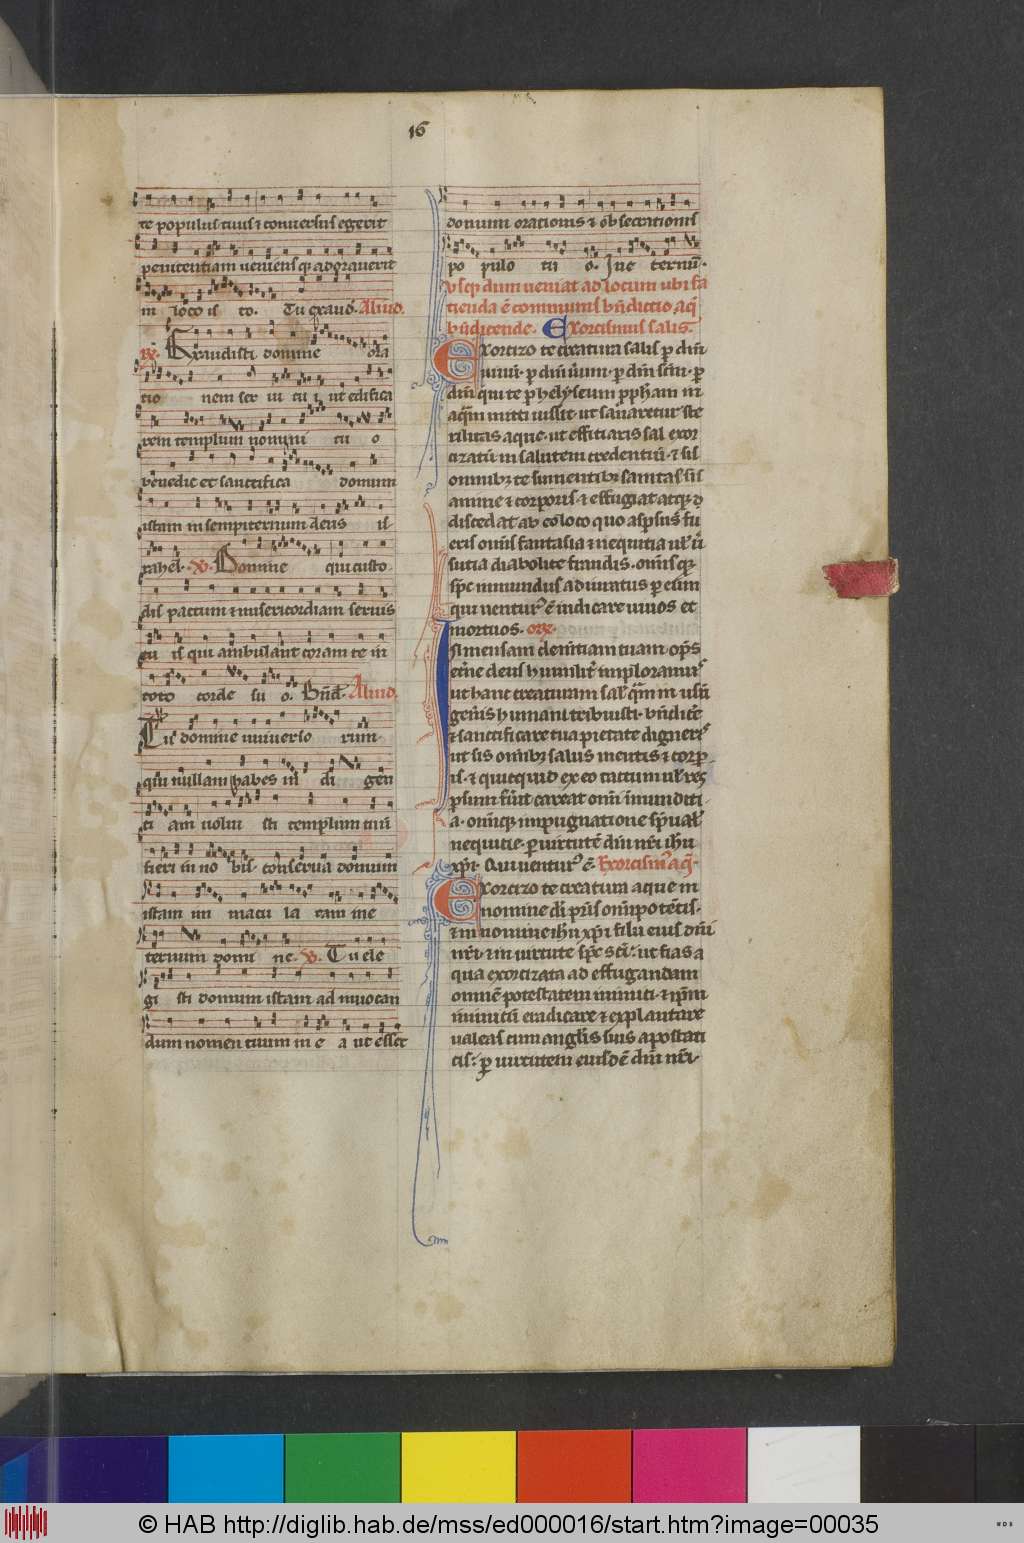 16
te populus tuus ⁊ conversus egerit
penitentiam veniensq; adoraverit
in loco is to. Tu exaud. Aliud.
R. Exaudisti domine ora
tio nem ser vi tu i ut edifica
rem templum nomini tu o
benedic et sanctifica domum
istam in sempiternum deus is
rahel. V. Domine qui custo
dis pactum ⁊ misericordiam servis
tu is qui ambulant coram te in
toto corde su o. Bnd. Aliud.
Tu domine universo rum
qui nullam habes in di gen
ti am volui sti templum tuū
fieri in no bis conserva domum
istam im macu la tam in e
ternum domi ne. V. Tu ele
gi sti domum istam ad invocan
dum nomen tuum in e a ut esset
domum orationis ⁊ obsecrationis
po pulo tu o. In e ternū.
Usq; dum veniat ad locum ubi fa
cienda ē communis bn̄dictio aq̄
bn̄dicende. Exorcismus salis.
Exorcizo te creatura salis p dm̄
vivū. p dm̄ verum. p dm̄ scm̄. p
dm̄ qui te p helyseum pphām in
aqm̄ mitti iussit. ut sanaretur ste
rilitas aque. ut efficiaris sal exor
cizatū in salutem credentiū. ⁊ sis
omnibz te sumentibz sanitas
anime ⁊ corporis. ⁊ effugiat atq;
discedat ab eo loco quo aspsus fu
eris omnis fantasia ⁊ nequitia ul
sutia diabolice fraudis. omnisq;
spc inmundus adiuratus p eum
qui ventur' ē iudicare vivos et
mortuos. orō.
Inmensam clementiam tuam. ops
etne deus humilit imploramus
ut hanc creaturam sal' qm in usū
genis humani tribuisti. bn̄dice
⁊ sanctificare tua pietate digneris
ut sis omibz salus mentis ⁊ corp
is. ⁊ quicquid ex eo tactum ul' res
psum fuit careat omi inmundici
a. omiq; impugnatione spual
nequicie. p virtutē dni nri ihu
xpi. Qui ventur' ē. Exorcism' aq̄.
Exorcizo te creatura aque in
nomine di pris omipotētis.
⁊ in nomine ihu xpi filii eius dni
nri. ⁊ in virtute spc sci. ut fias a
qua exorcizata ad effugandam
omnē potestatem inimici. ⁊ ipm
inimicū eradicare ⁊ explantare
valeas cum anglis suis apostati
cis. p virtutem eiusdē dni nri.
© HAB http://diglib.hab.de/mss/ed000016/start.htm?image=00035